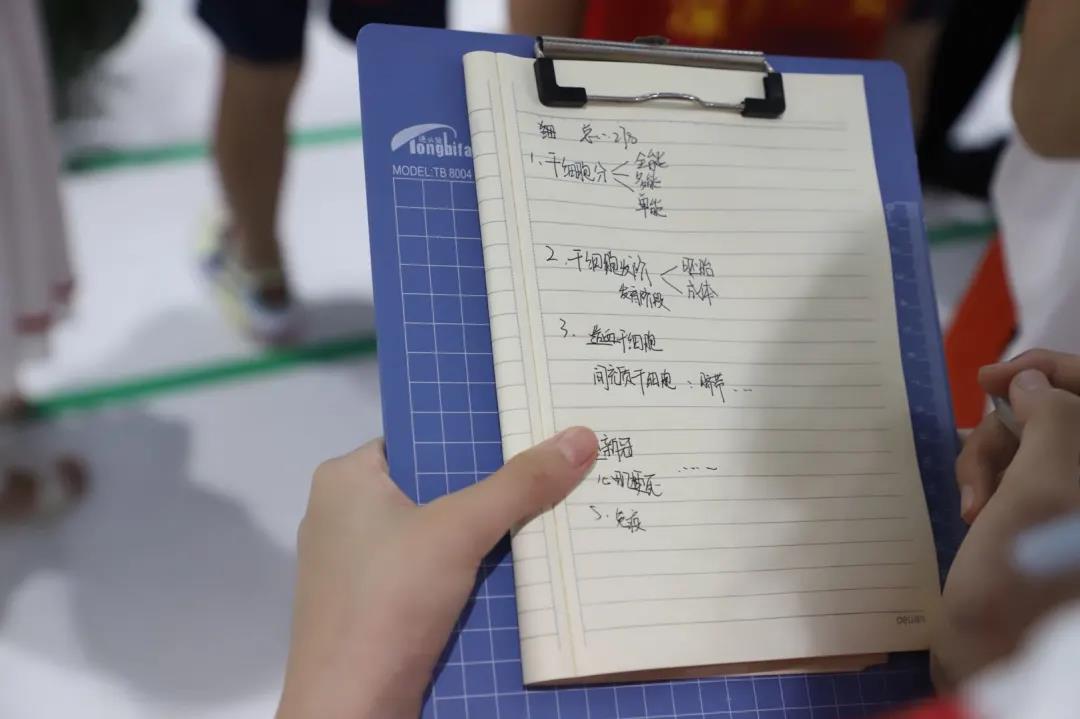 通必發
Tongbifa
MODEL:TB 8004
细 总...
1、干细胞分 全能
多能
单能
2.干细胞发阶 胚胎
发育阶段 成体
3. 造血干细胞
间充质干细胞:脐带...
新冠
心肌梗死 ....
5.免疫
deli